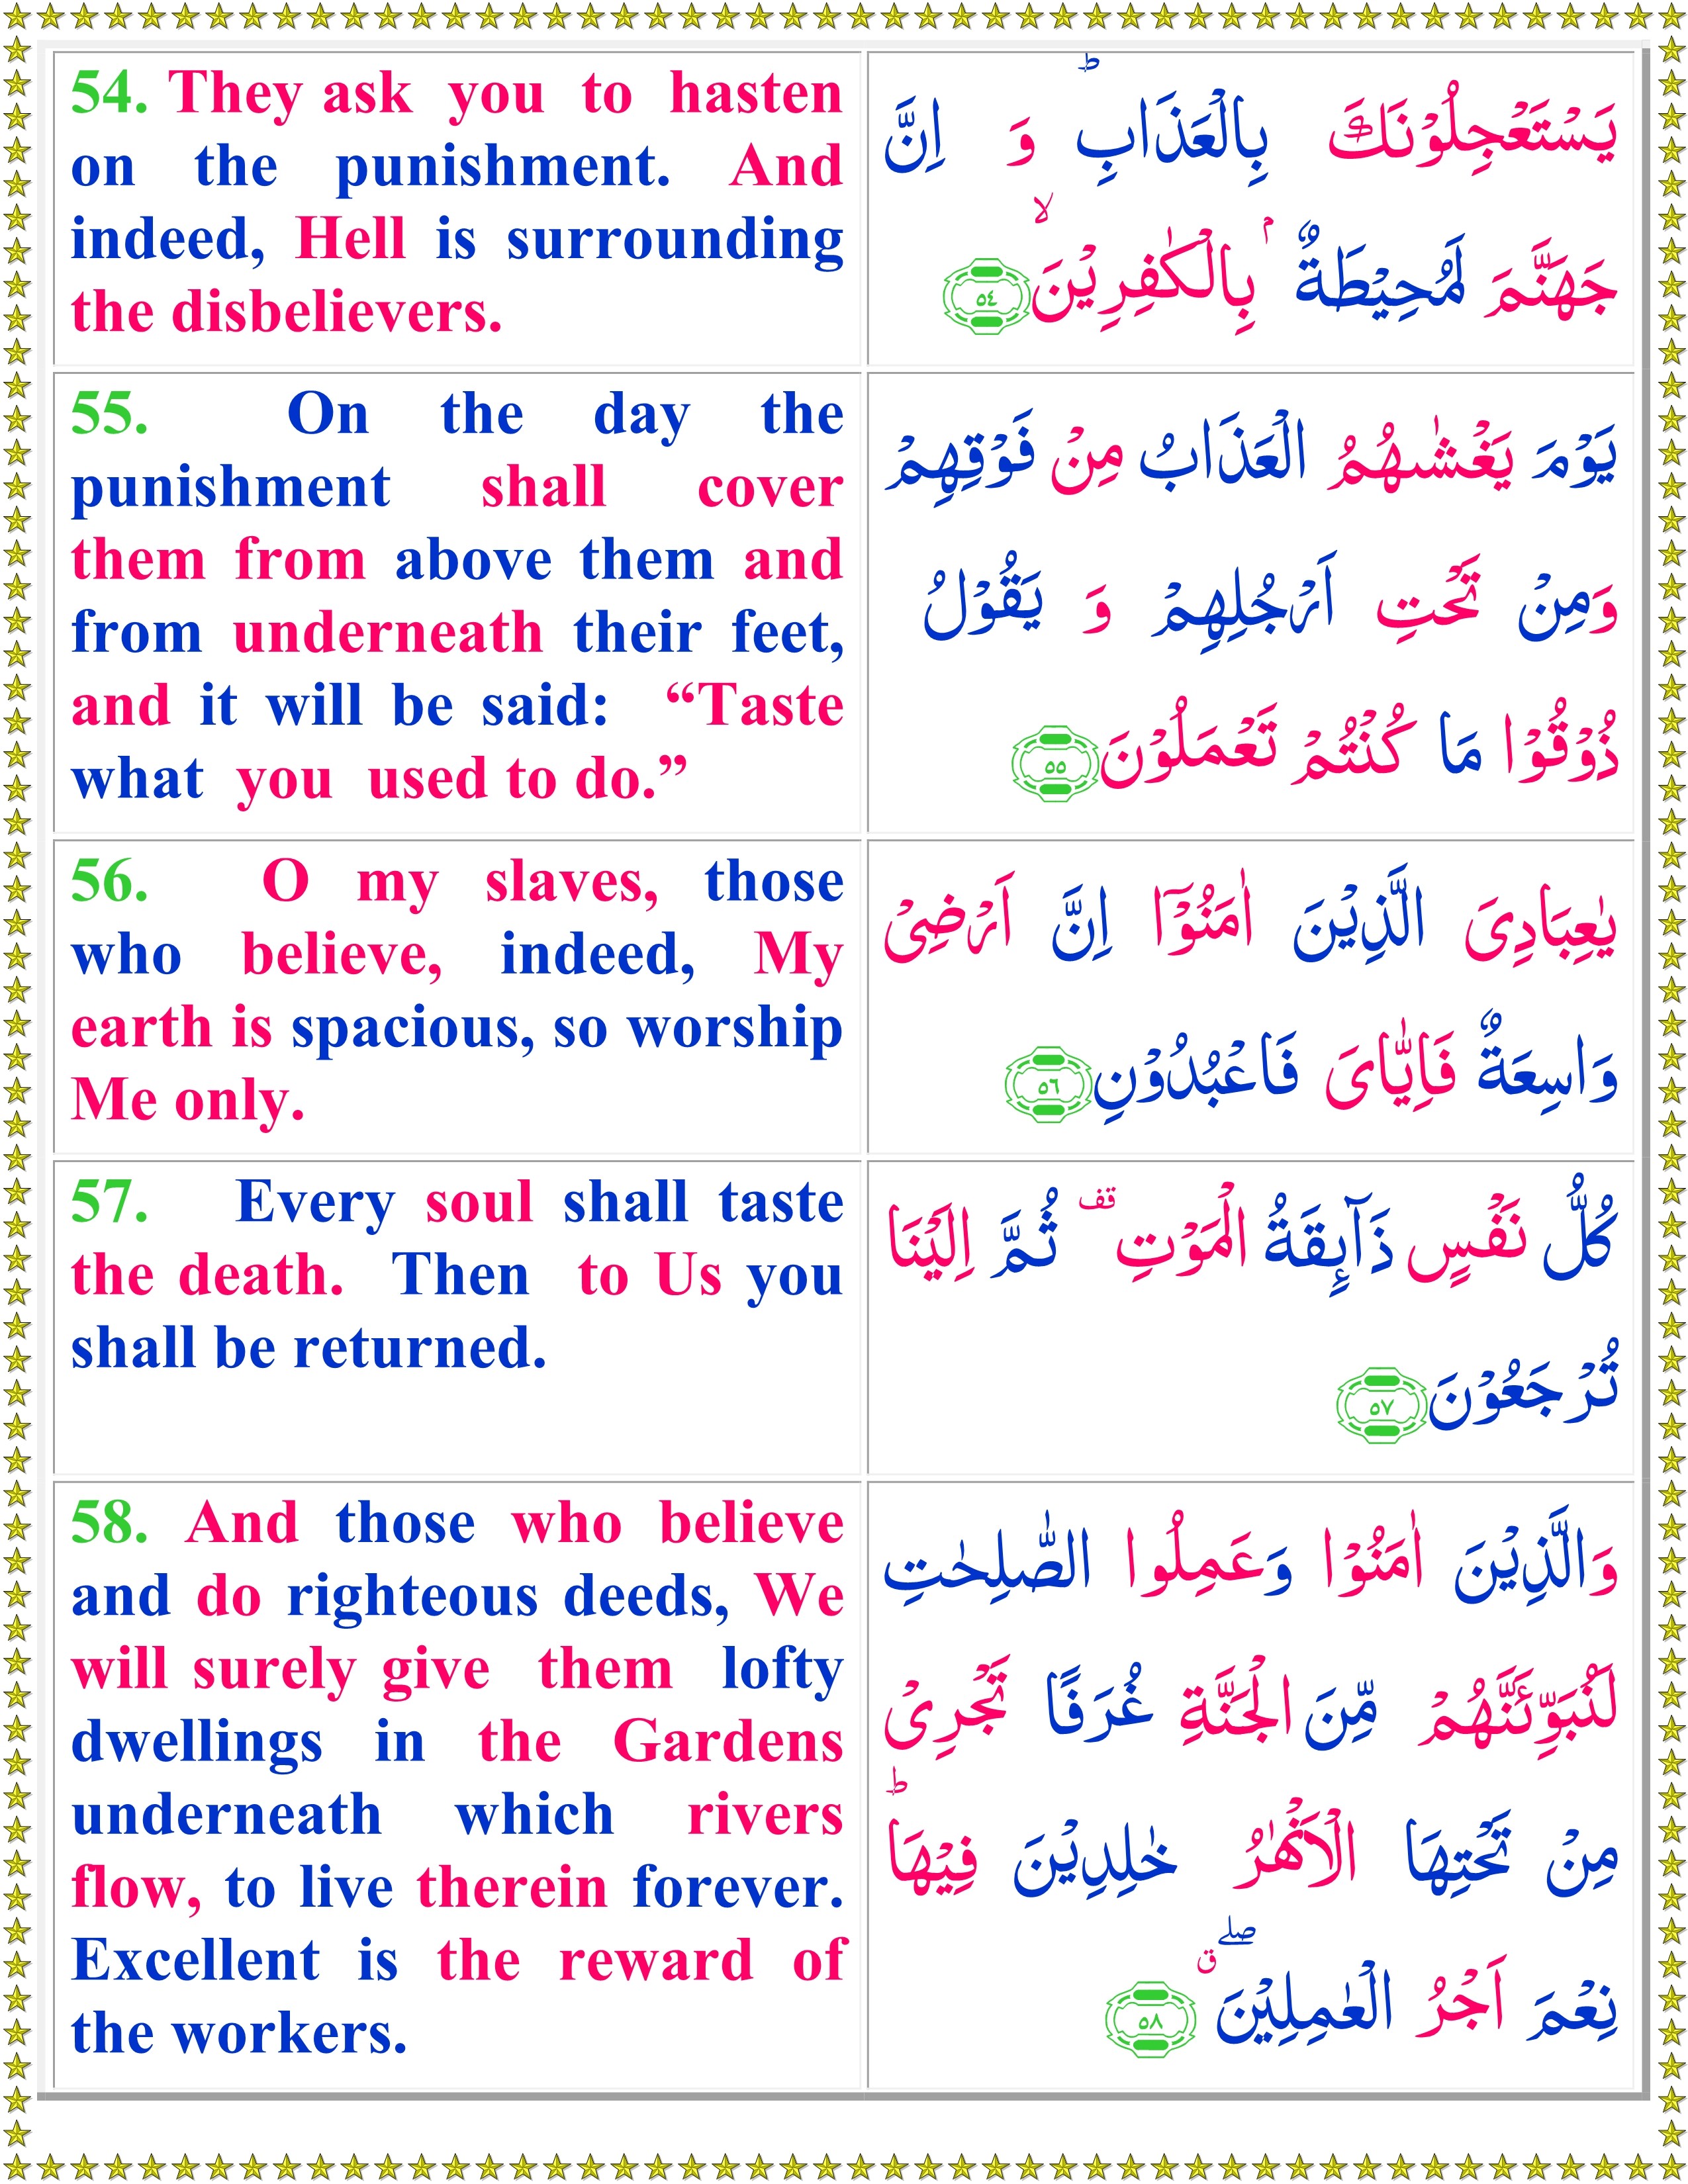 54. They ask you to hasten
on the punishment. And
indeed, Hell is surrounding
the disbelievers.
يَسْتَعْجِلُوْنَكَ بِالْعَذَابِ ؕ وَ اِنَّ
جَهَنَّمَ لَمُحِيْطَةٌۢ بِالْكٰفِرِيْنَ ۙ ٥٤
55. On the day the
punishment shall cover
them from above them and
from underneath their feet,
and it will be said: “Taste
what you used to do.”
يَوْمَ يَغْشٰىهُمُ الْعَذَابُ مِنْ فَوْقِهِمْ
وَمِنْ تَحْتِ اَرْجُلِهِمْ وَ يَقُوْلُ
ذُوْقُوْا مَا كُنْتُمْ تَعْمَلُوْنَ ٥٥
56. O my slaves, those
who believe, indeed, My
earth is spacious, so worship
Me only.
يٰعِبَادِىَ الَّذِيْنَ اٰمَنُوْۤا اِنَّ اَرْضِىْ
وَاسِعَةٌ فَاِيَّاىَ فَاعْبُدُوْنِ ٥٦
57. Every soul shall taste
the death. Then to Us you
shall be returned.
كُلُّ نَفْسٍ ذَآٮِٕقَةُ الْمَوْتِ قف ثُمَّ اِلَيْنَا
تُرْجَعُوْنَ ٥٧
58. And those who believe
and do righteous deeds, We
will surely give them lofty
dwellings in the Gardens
underneath which rivers
flow, to live therein forever.
Excellent is the reward of
the workers.
وَالَّذِيْنَ اٰمَنُوْا وَعَمِلُوا الصّٰلِحٰتِ
لَنُبَوِّئَنَّهُمْ مِّنَ الْجَنَّةِ غُرَفًا تَجْرِىْ
مِنْ تَحْتِهَا الْاَنْهٰرُ خٰلِدِيْنَ فِيْهَا ؕ
نِعْمَ اَجْرُ الْعٰمِلِيْنَ ۖ ق ٥٨